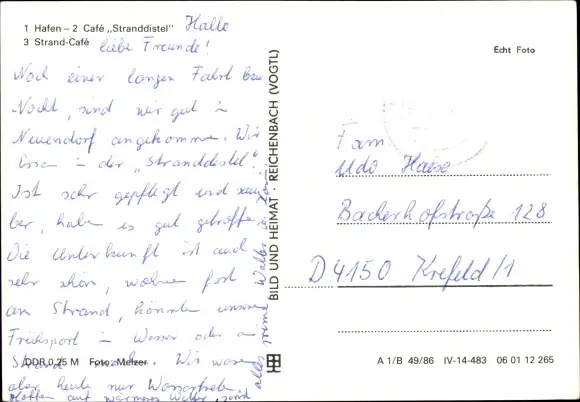 1 Hafen – 2 Café „Stranddistel"
3 Strand-Café
Echt Foto
Hallo
liebe Freunde!
Noch einer langen Fahrt bzw
Nacht, sind wir gut in
Neuendorf angekommen. Wir
Essen in der „Stranddistel".
Ist sehr gepflegt und sau
ber, haben es gut getroffen.
Die Unterkunft ist auch
sehr schön, wohnen fast
am Strand, könnten unseren
Frühsport im Wasser oder am
Strand machen. Wir waren
aber heute nur Wassertreten.
Hoffen auf wärmeres Wetter, sonst
alles prima
Fam.
Udo Haase
Backerhofstraße 128
D 4150 Krefeld/1
BILD UND HEIMAT · REICHENBACH (VOGTL)
DDR 0,25 M Foto: Melzer
A 1/B 49/86 IV-14-483 06 01 12 265